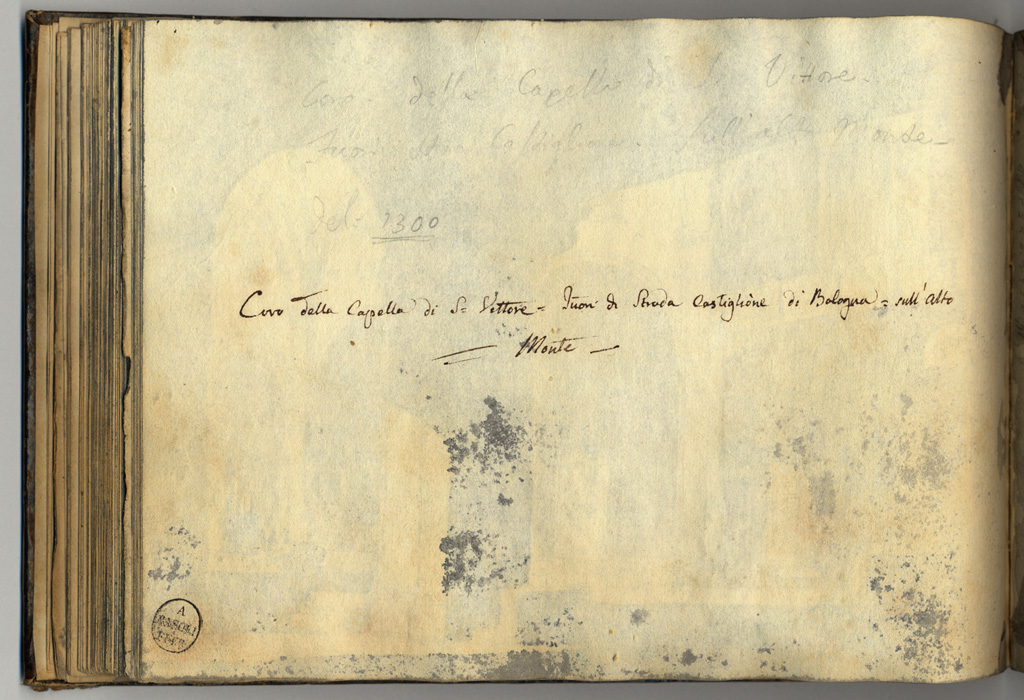 Coro della Capella di S. Vittore -
fuori Stra Castiglione sull'alto Monte -
del 1300
Coro della Capella di S= Vittore = fuori di Strada Castiglione di Bologna = sull' Alto
Monte
A
BASOLI